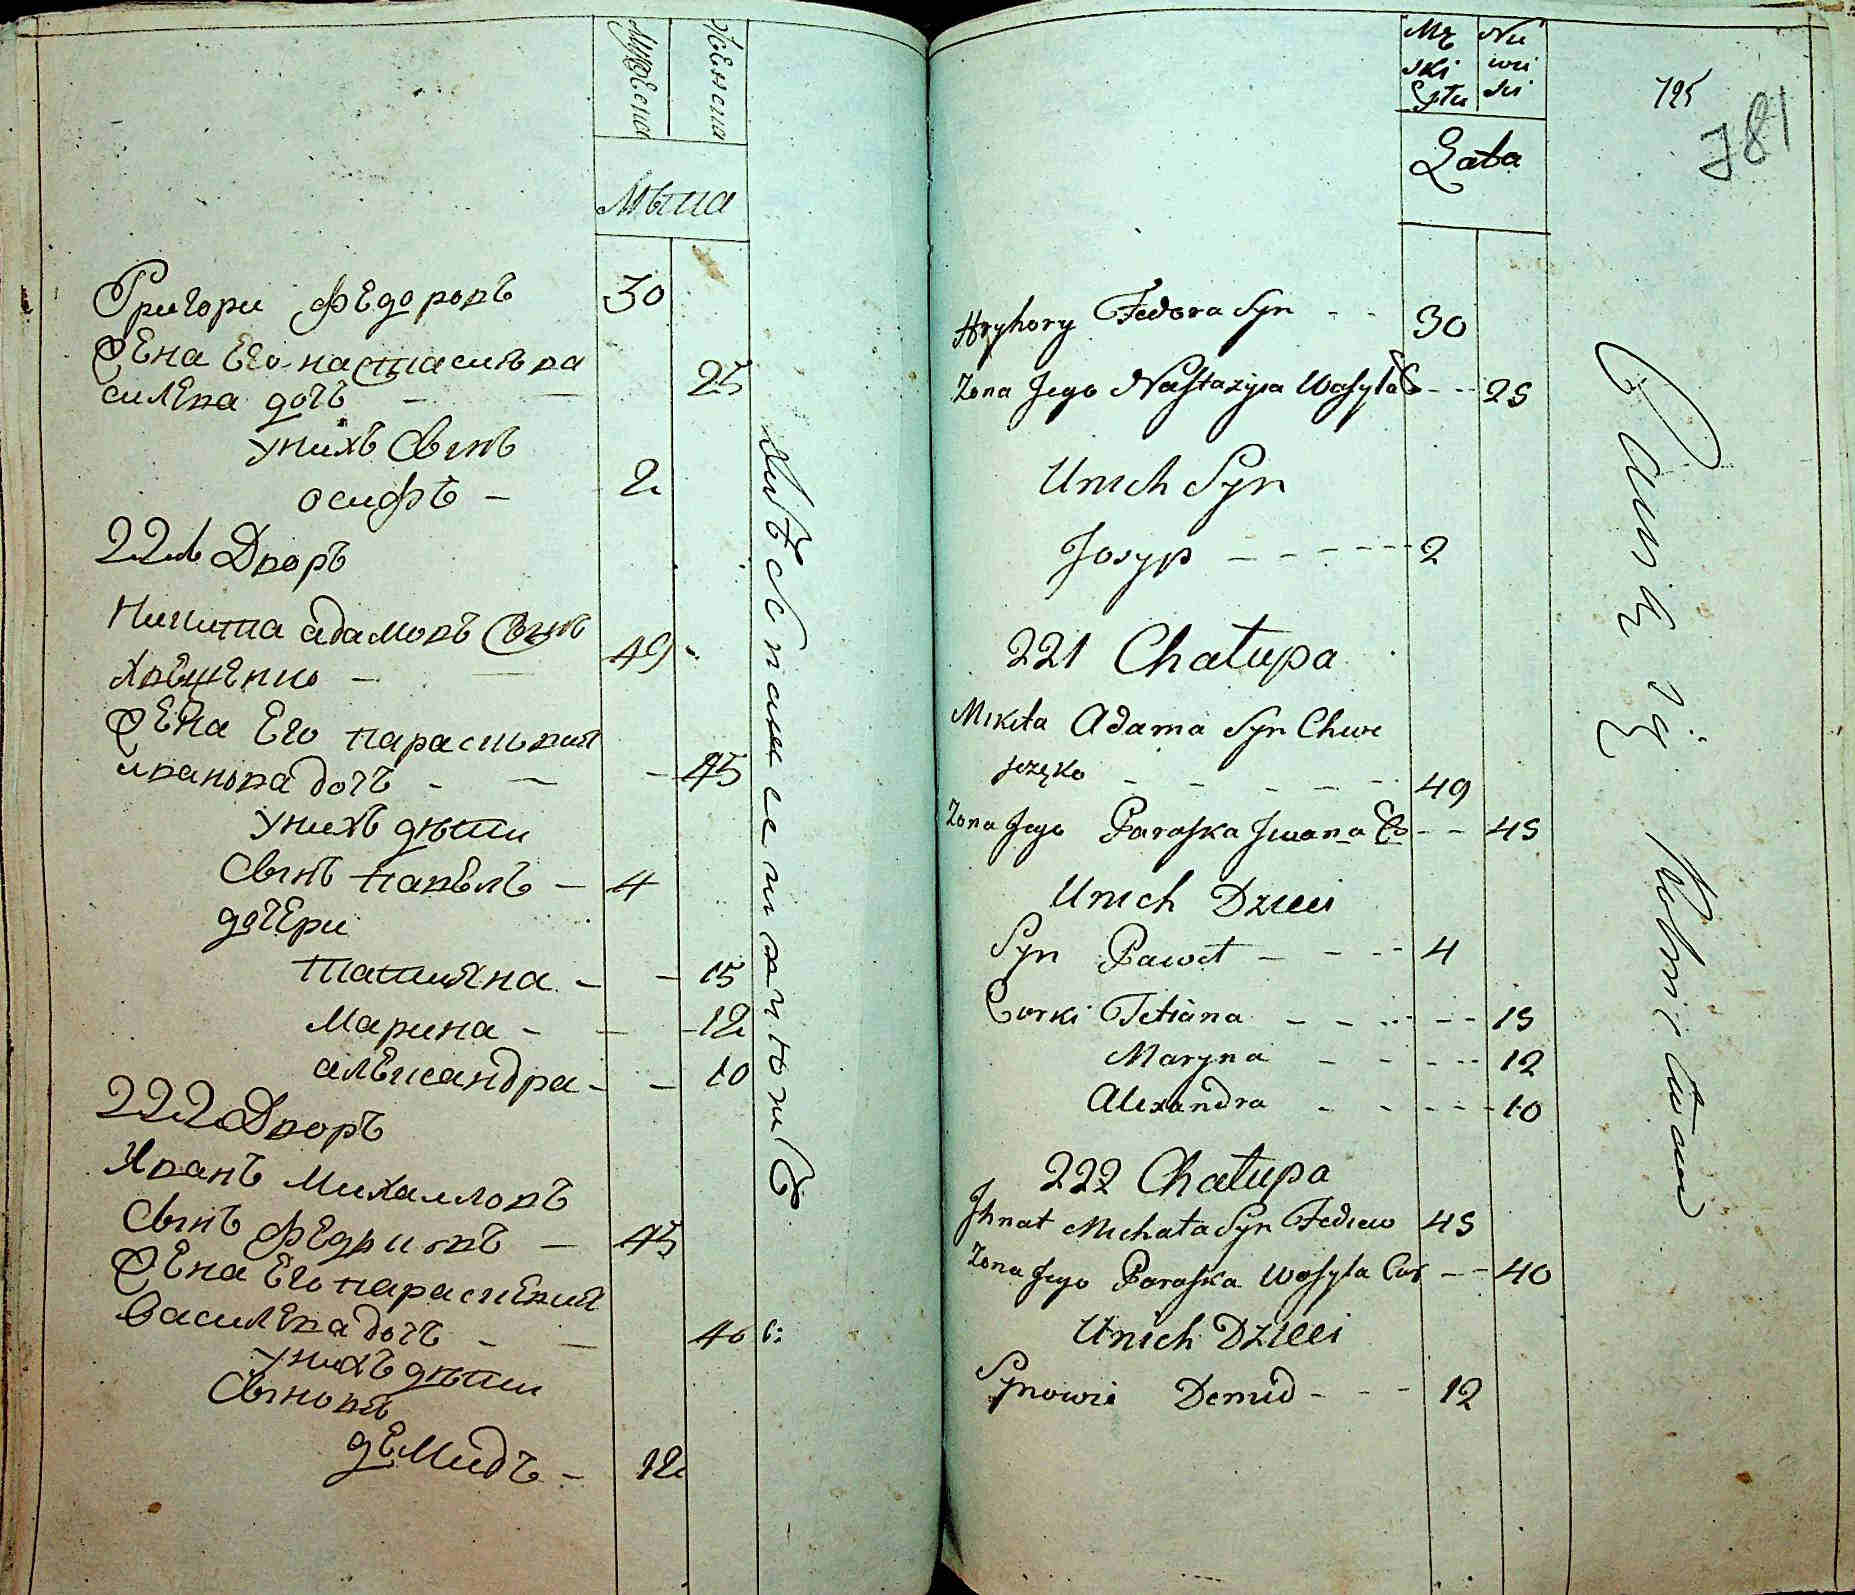 Мужеска
Женска
Лѣта
Григори Федоровъ 30
Жена Его настасия ва
силева дочь - - 25
у нихъ Сынъ
осифъ - 2
221 Дворъ
Никита адамовъ Сынъ
Хвещенко - 49
Жена Его парасковия
иванова дочь - - 45
у нихъ дѣти
Сынъ павелъ - 4
дочери
татияна - - 15
Марина - - 12
александра - - 10
222 Дворъ
Иванъ Михаиловъ
Сынъ Федьковъ - 45
Жена Его парасковия
василева дочь - - 40
у нихъ дѣти
Сыновя
демидъ - 12
Mę
ski
Nie
wie
ści
Lata
725
781
Hryhory Fedora Syn - - 30
Żona Jego Nastazyia Wasyla C - - 25
U nich Syn
Josyp - - - - - - 2
221 Chałupa
Mikita Adama Syn Chwe
szczęko - - - - - - 49
Żona Jego Paraska Jwana C - - 45
U nich Dzieci
Syn Paweł - - - - 4
Corki Tetiana - - - - - 15
Maryna - - - - - 12
Alexandra - - - - - 10
222 Chałupa
Jhnat Michała Syn Fediew 45
Żona Jego Paraska Wasyla Cor - - 40
U nich Dzieci
Synowie Demid - - - 12